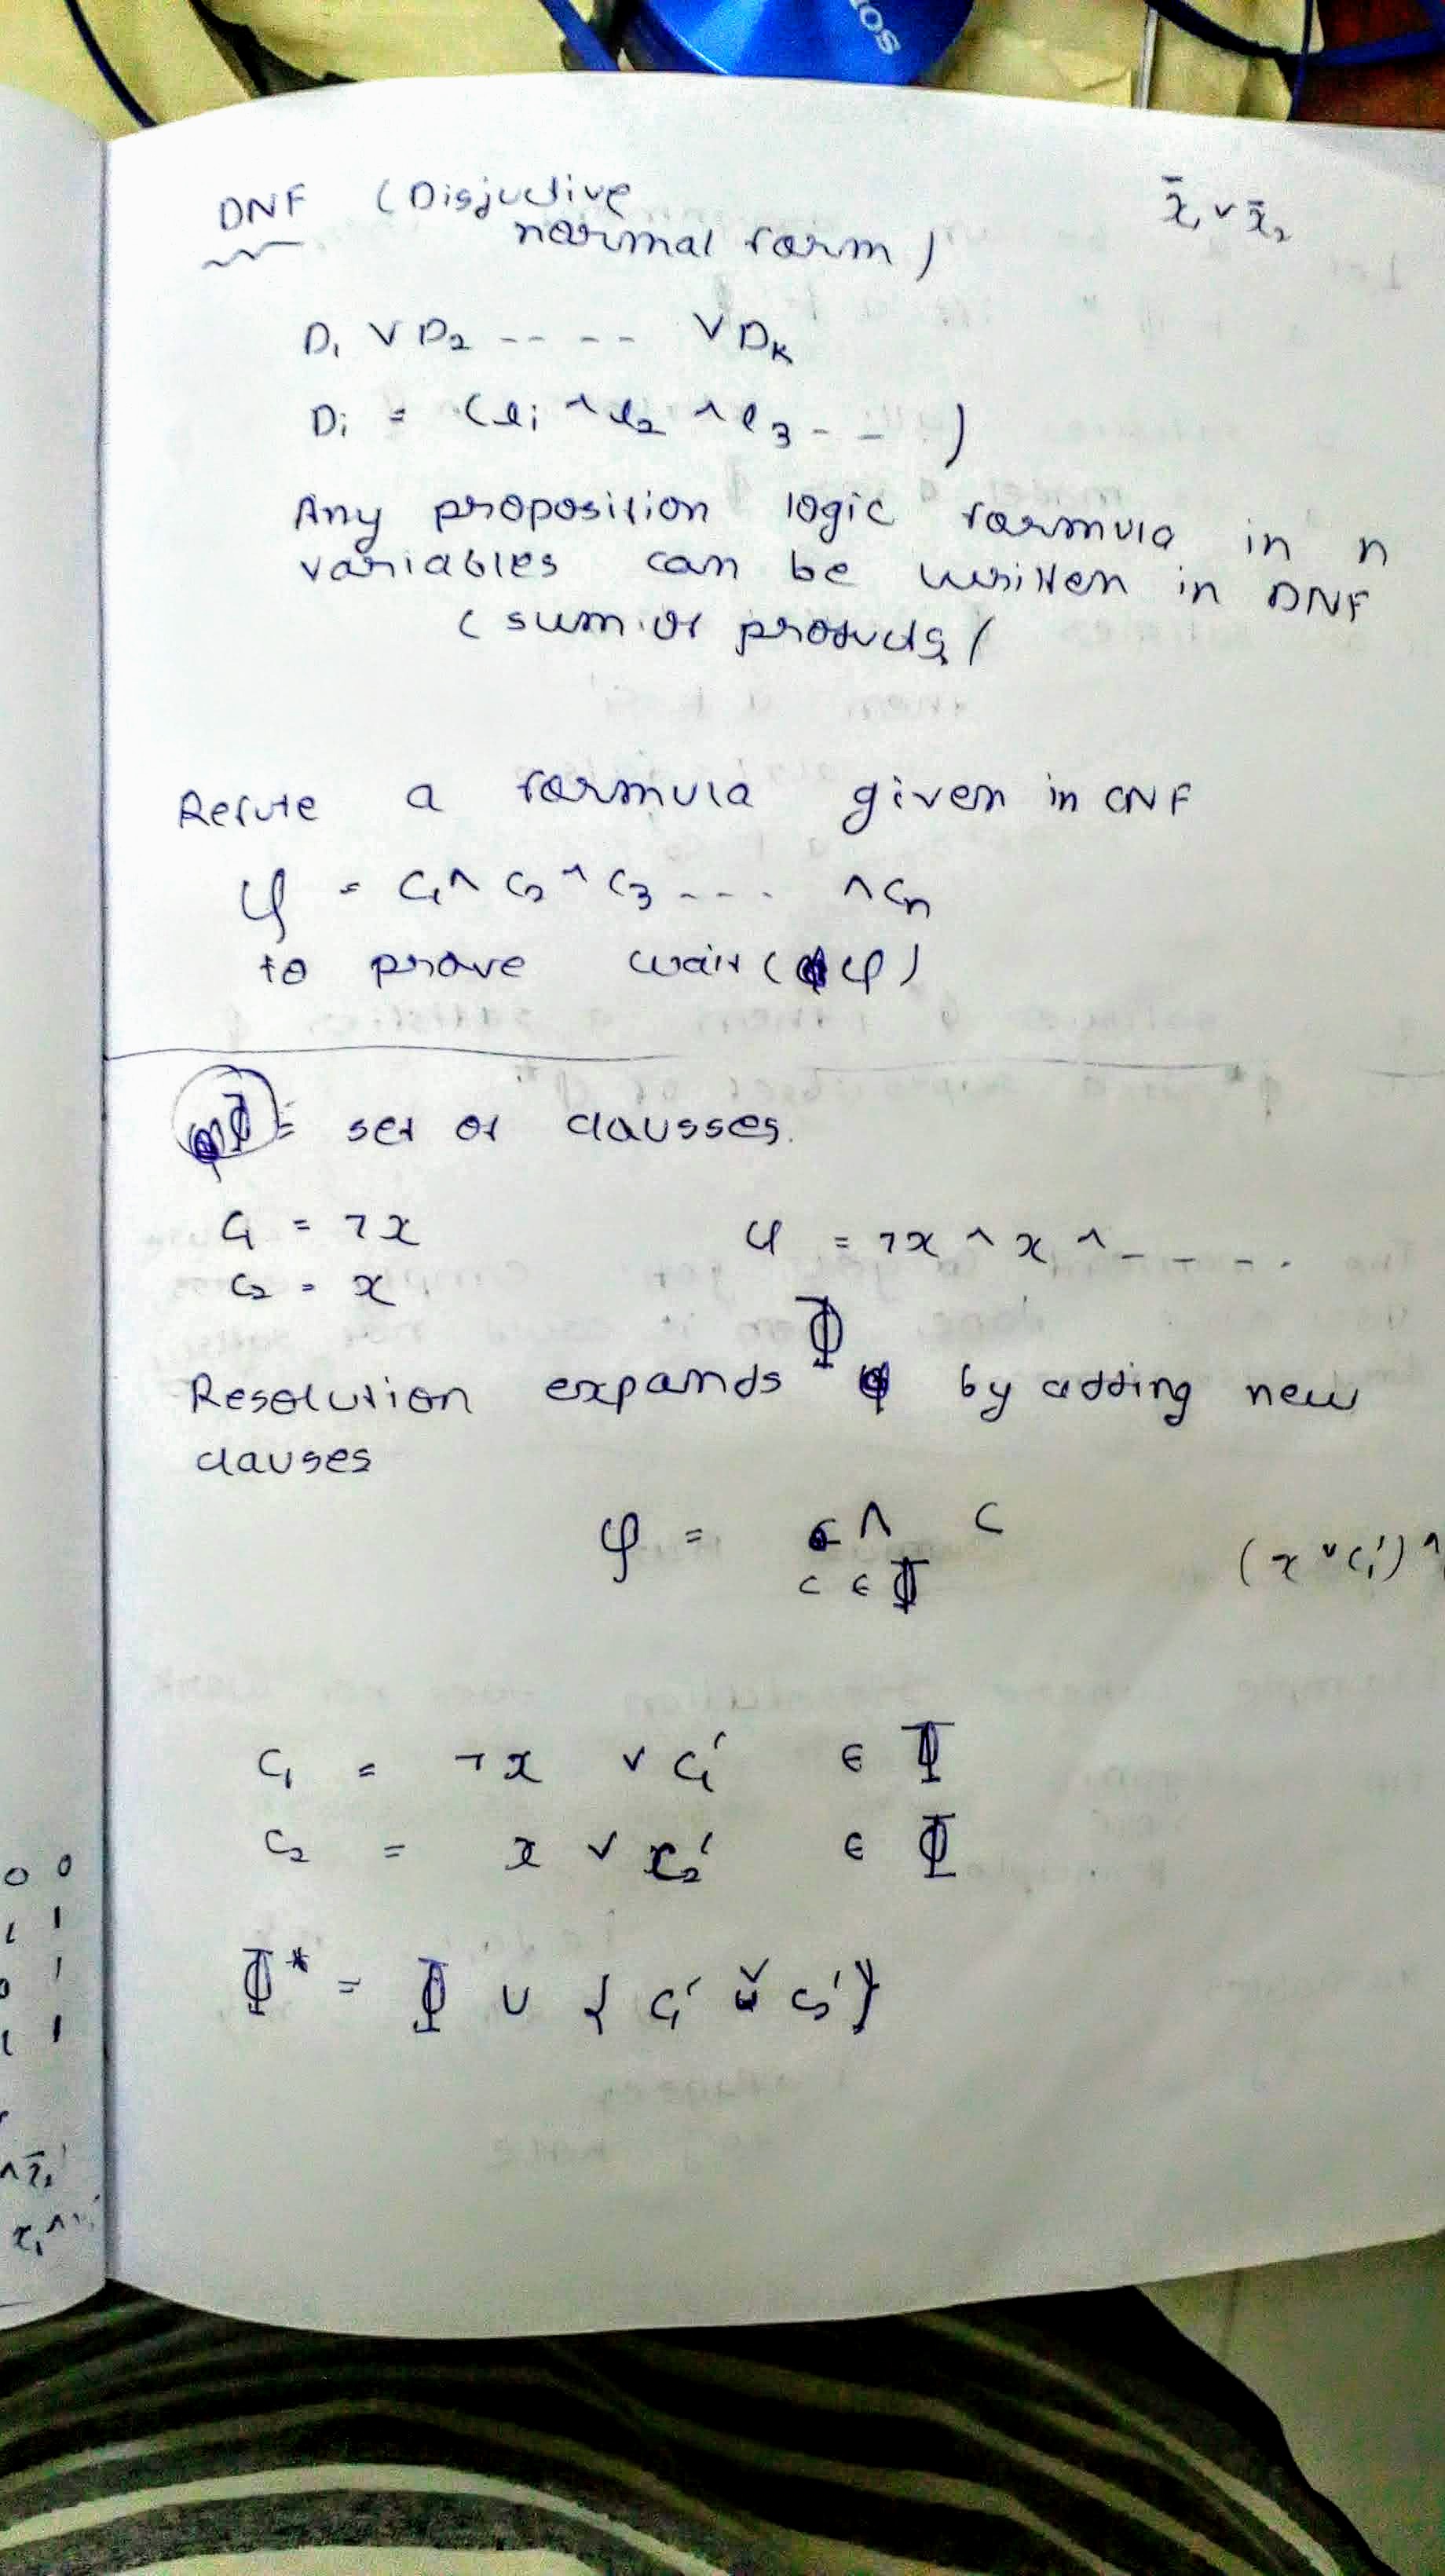 DNF (Disjuctive
normal form)
x̄₁ ∨ x̄₂
D₁ ∨ D₂ -- --- ∨ Dₖ
Dᵢ = (lᵢ ^ l₂ ^ l₃ - - )
Any proposition logic formula in n
variables can be written in DNF
(sum of products)
Refute a formula given in CNF
φ = C₁ ∧ C₂ ^ C₃ --- . ∧ Cₙ
to prove (φ)
Φ = set of clausses.
C₁ = ¬x
φ = ¬x ^ x ^ - - - - .
C₂ = x
Φ
Resolution expands by adding new
clauses
φ = ∧ C
C ∈ Φ
(x ∨ C₁′) ^
C₁ = ¬x ∨ C₁′ ∈ Φ
C₂ = x ∨ C₂′ ∈ Φ
Φ* = Φ ∪ { C₁′ ∨ C₂′ }
0 0
1 1
0 1
1 1